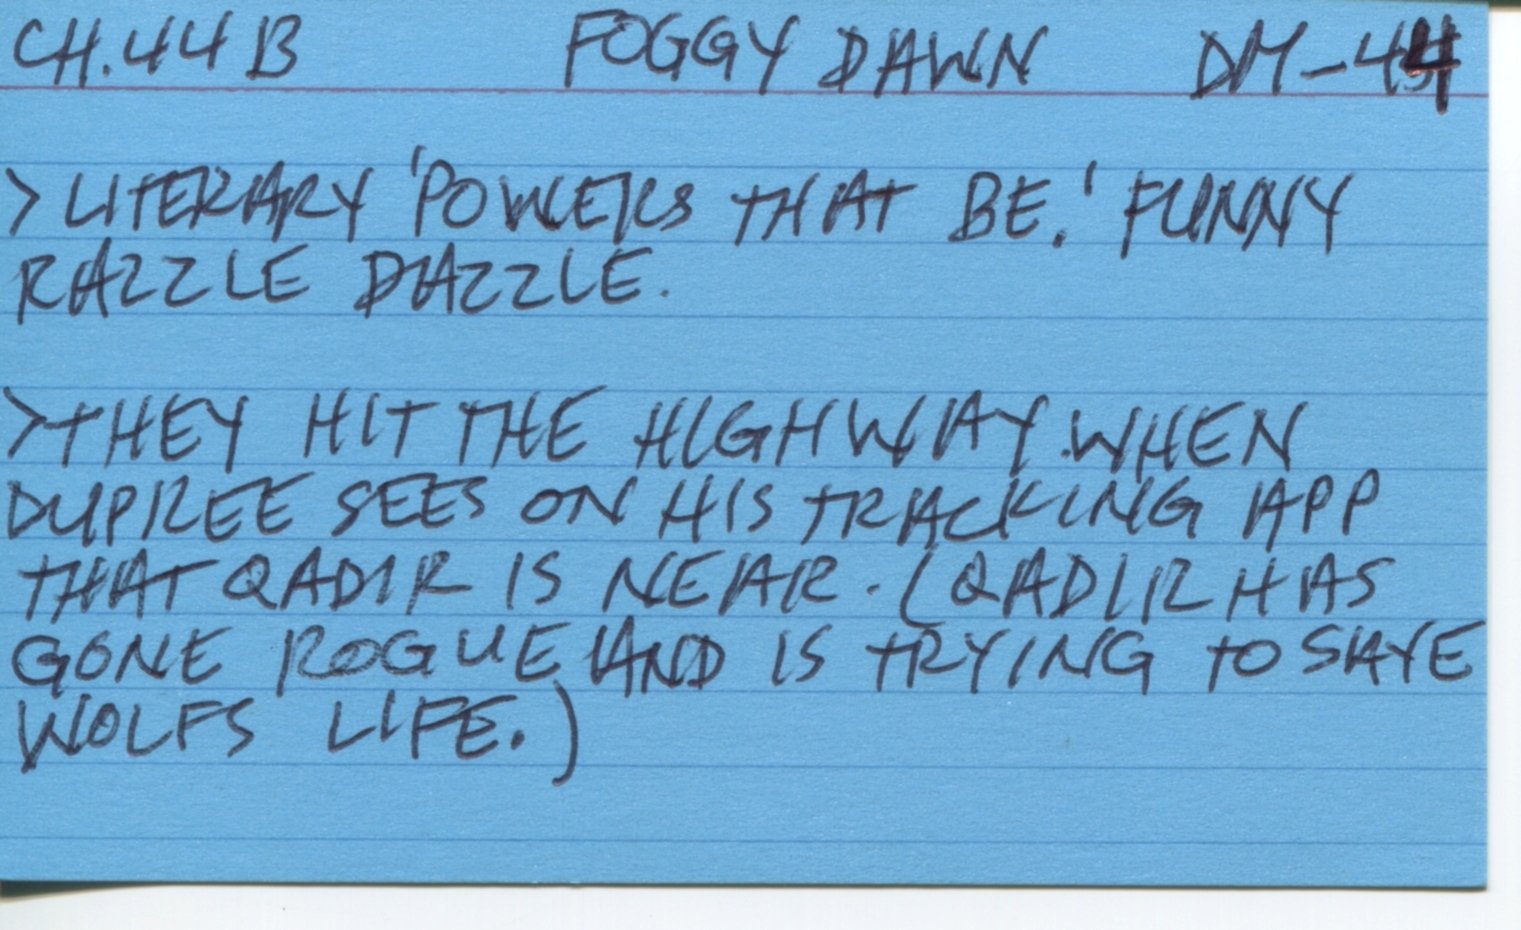 CH. 44 B FOGGY DAWN DM-44
> LITERARY 'POWERS THAT BE.' FUNNY
RAZZLE DAZZLE.
> THEY HIT THE HIGHWAY. WHEN
DUPREE SEES ON HIS TRACKING APP
THAT QADIR IS NEAR. (QADIR HAS
GONE ROGUE AND IS TRYING TO SAVE
WOLFS LIFE.)